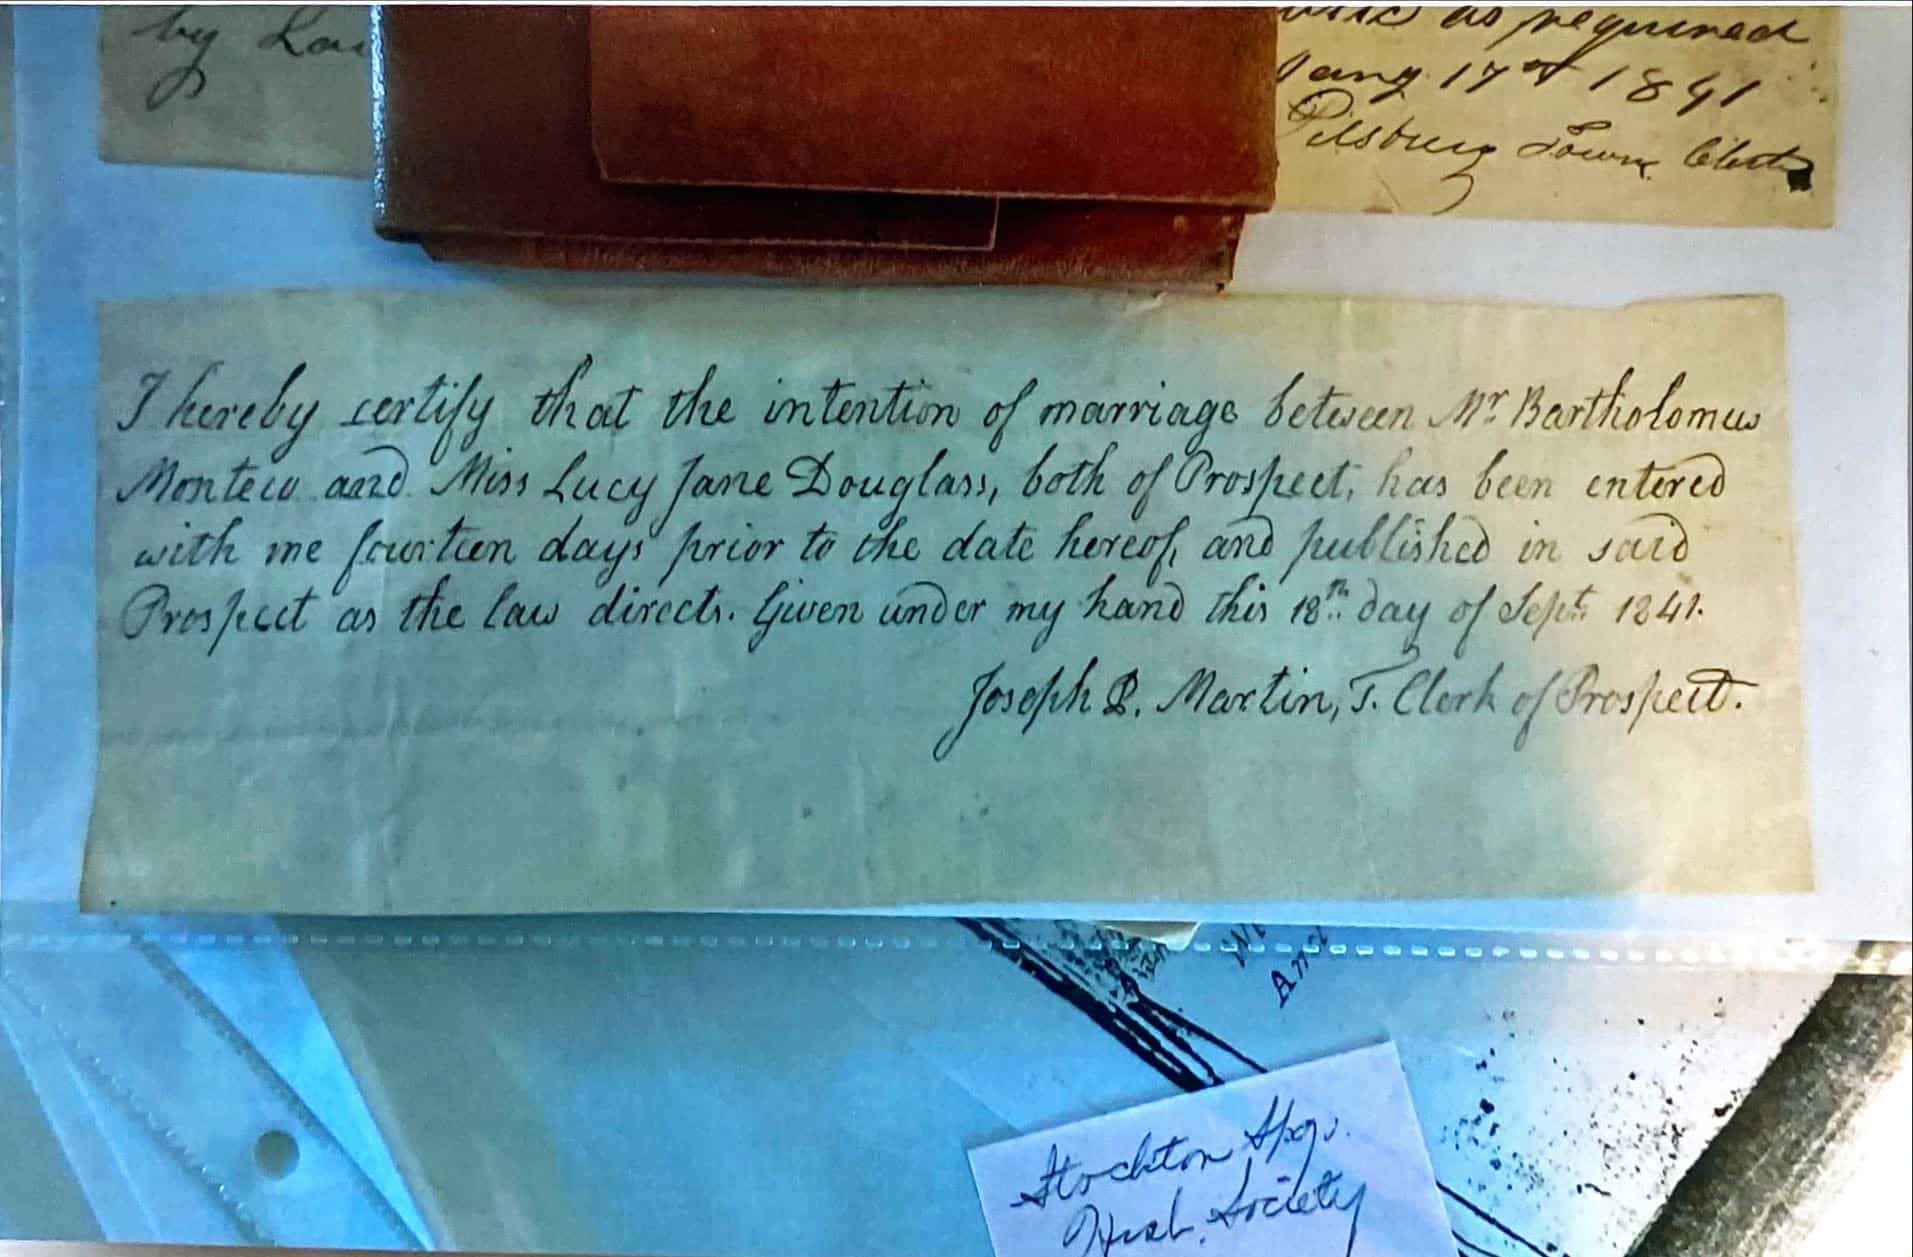 by
as required
17th 1841
Pilsbury Town Clerk
I hereby certify that the intention of marriage between Mr Bartholomew
Montew and Miss Lucy Jane Douglass, both of Prospect, has been entered
with me fourteen days prior to the date hereof, and published in said
Prospect as the law directs. Given under my hand this 18th day of Sept. 1841.
Joseph P. Martin, T. Clerk of Prospect.
Stockton Spgs.
Hist. Society